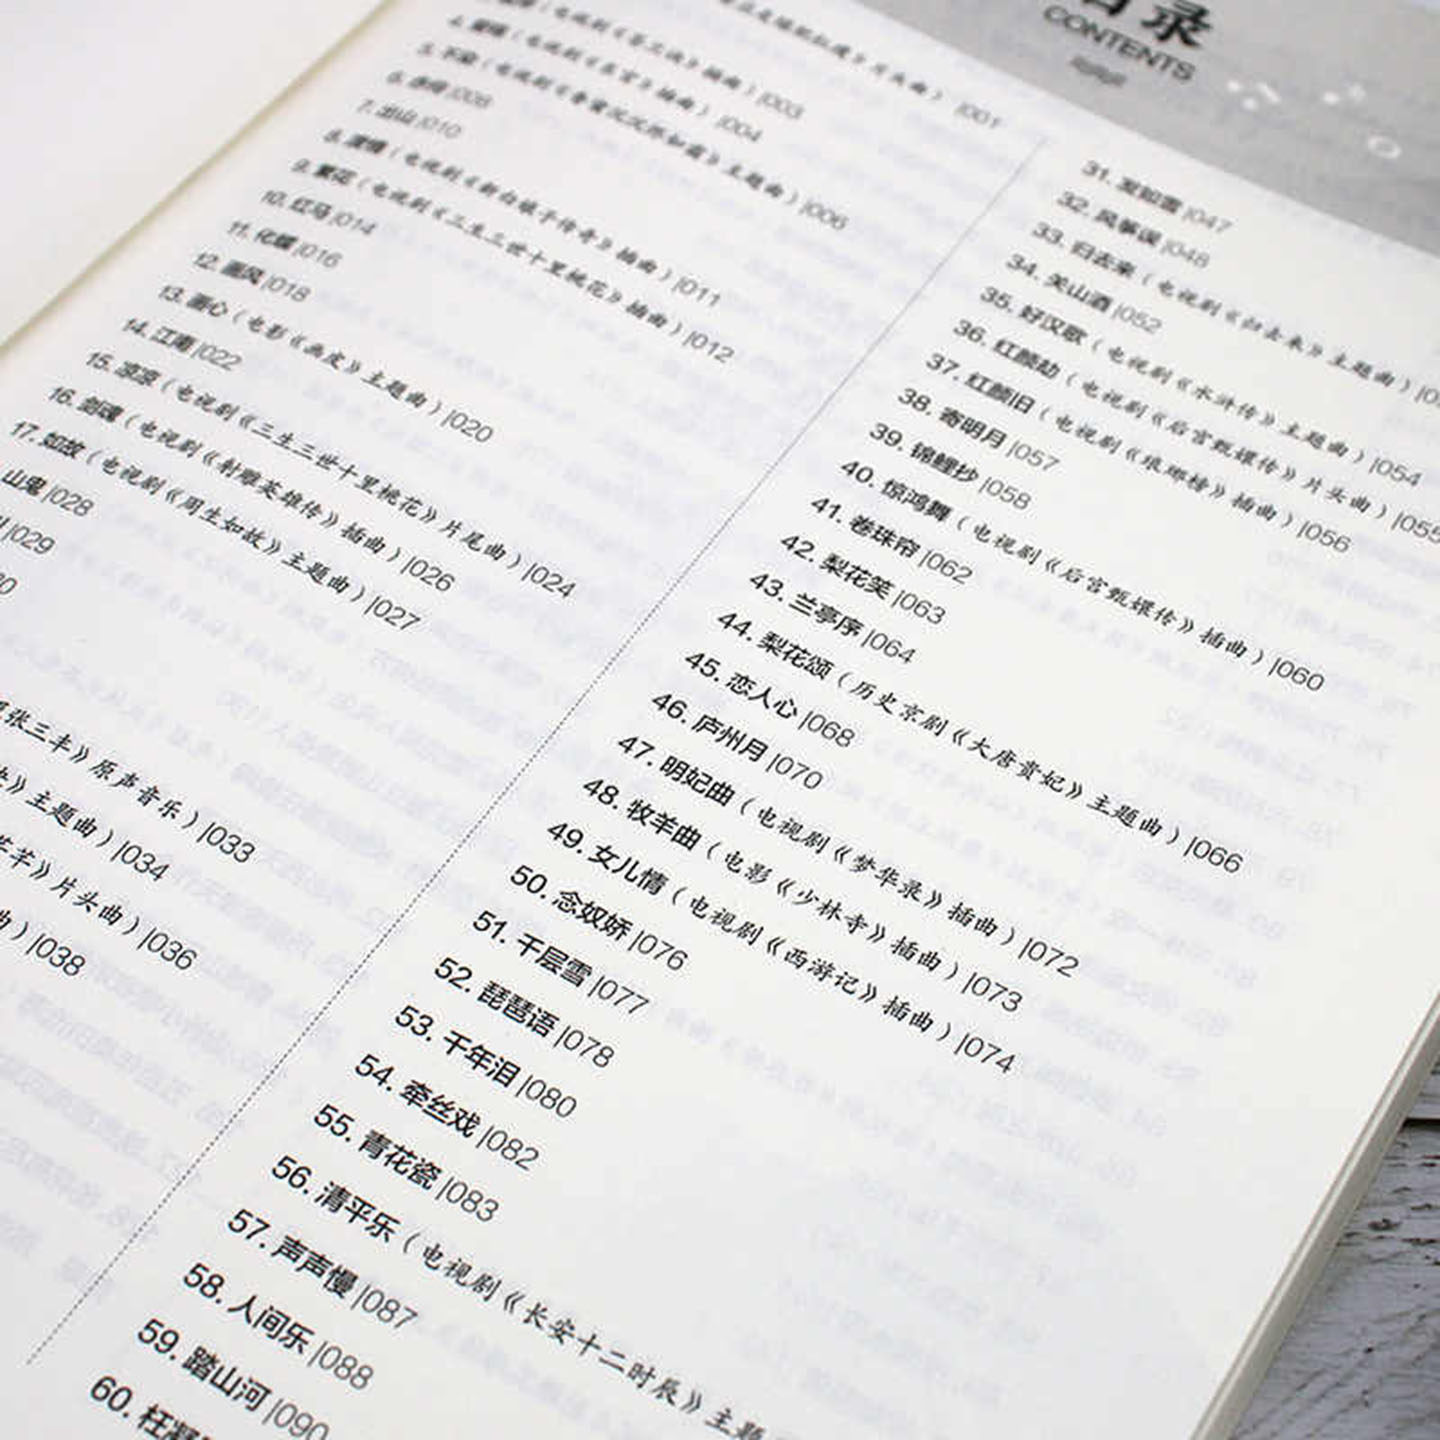 目录
CONTENTS
|001
插曲）|003
插曲）|004
主题曲）|006
|008
7. 出山|010
（电视剧《新白娘子传奇》插曲）|011
9. 繁花（电视剧《三生三世十里桃花》插曲）|012
10. 红马|014
11. 化蝶|016
12. 画风|018
13. 画心（电影《画皮》主题曲）|020
14. 江南|022
15. 凉凉（电视剧《三生三世十里桃花》片尾曲）|024
16. 剑魂（电视剧《射雕英雄传》插曲）|026
17. 如故（电视剧《周生如故》主题曲）|027
山鬼|028
|029
张三丰》原声音乐）|033
》主题曲）|034
芊》片头曲）|036
曲）|038
31. 发如雪|047
32. 风筝误|048
33. 归去来（电视剧《归去来》主题曲）
34. 关山酒|052
35. 好汉歌（电视剧《水浒传》主题曲）|054
36. 红颜劫（电视剧《后宫甄嬛传》片头曲）|055
37. 红颜旧（电视剧《琅琊榜》插曲）|056
38. 寄明月|057
39. 锦鲤抄|058
40. 惊鸿舞（电视剧《后宫甄嬛传》插曲）|060
41. 卷珠帘|062
42. 梨花笑|063
43. 兰亭序|064
44. 梨花颂（历史京剧《大唐贵妃》主题曲）|066
45. 恋人心|068
46. 庐州月|070
47. 明妃曲（电视剧《梦华录》插曲）|072
48. 牧羊曲（电影《少林寺》插曲）|073
49. 女儿情（电视剧《西游记》插曲）|074
50. 念奴娇|076
51. 千层雪|077
52. 琵琶语|078
53. 千年泪|080
54. 牵丝戏|082
55. 青花瓷|083
56. 清平乐（电视剧《长安十二时辰》主题
57. 声声慢|087
58. 人间乐|088
59. 踏山河|090
60. 枉凝